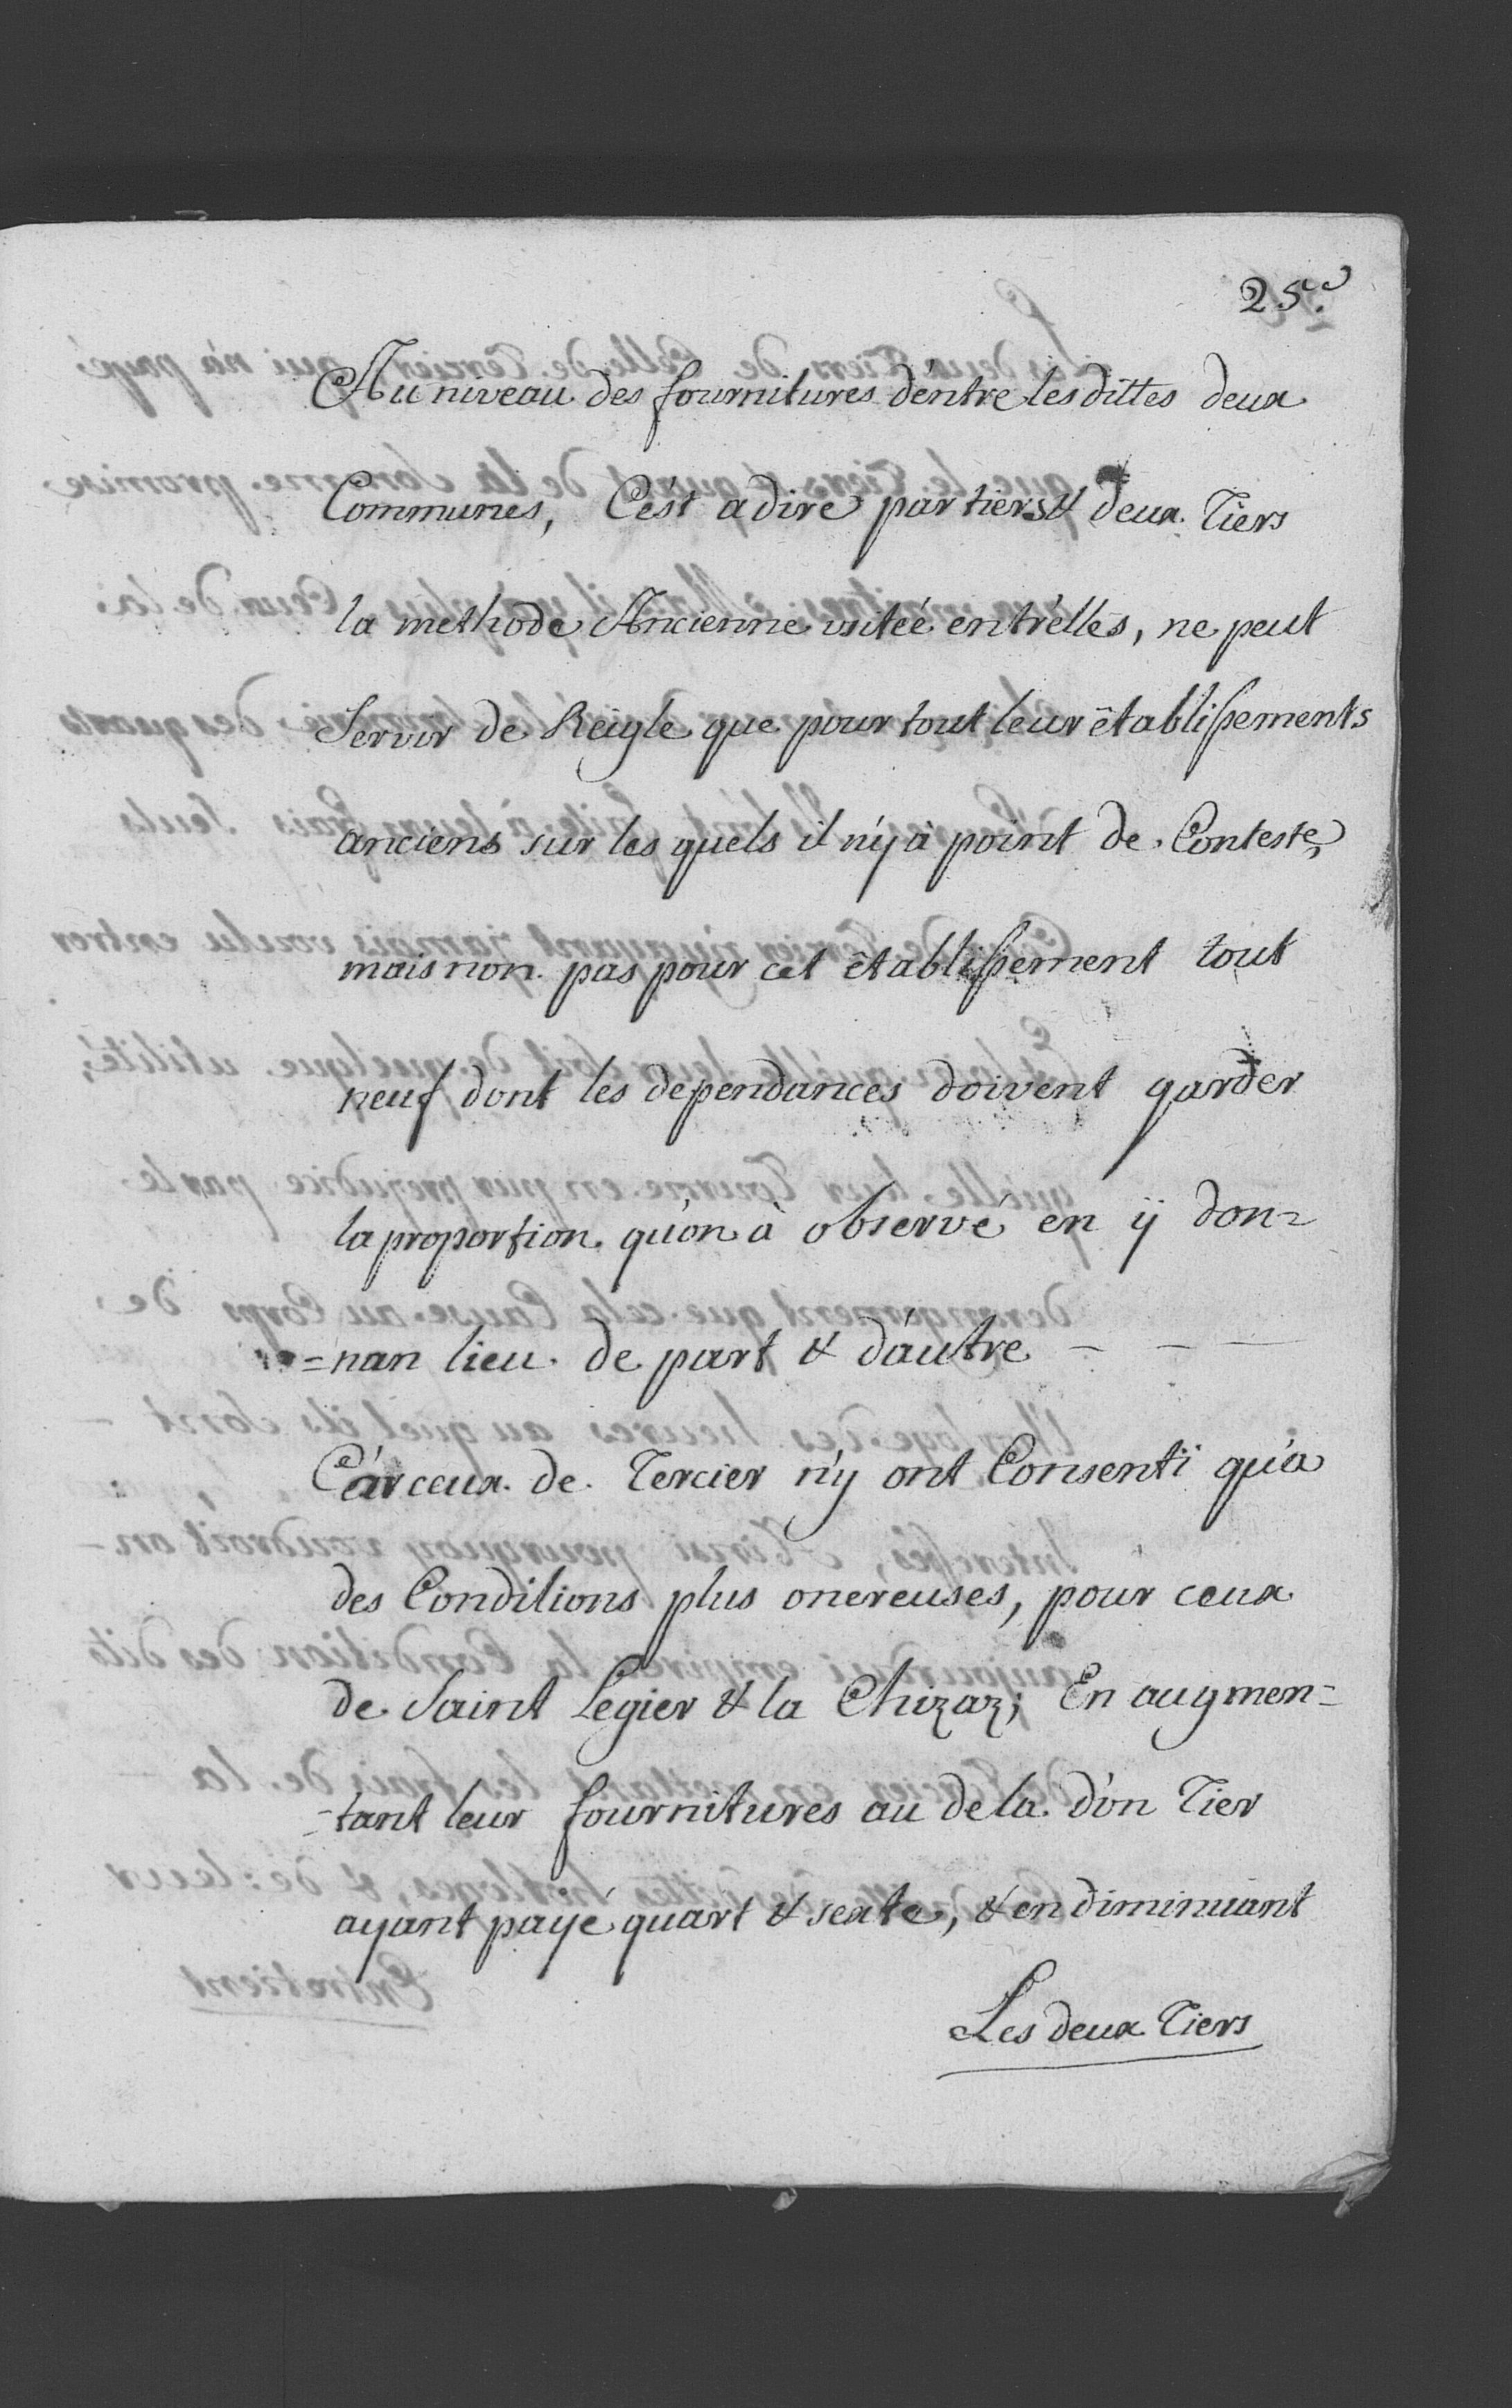 25.e
Au niveau des fournitures d'entre les dittes deux
Communes, C'est a dire par tiers & deux Tiers
la methode Ancienne usitée entr'elles, ne peut
Servir de Reigle que pour tout leur établissements
anciens sur les quels il n'y à point de Conteste,
mais non pas pour cet établissement tout
neuf dont les dependances doivent garder
la proportion qu'on à observé en ÿ don=
=nan lieu de part & d'autre - - -
Cár ceux de Tercier n'y ont Consenti qu'a
des Conditions plus onereuses, pour ceux
de Saint Legier & la Chizaz; En augmen=
=tant leur fournitures au dela d'on Tier
ayant payé quart & sexte, & en diminuant
Les deux Tiers